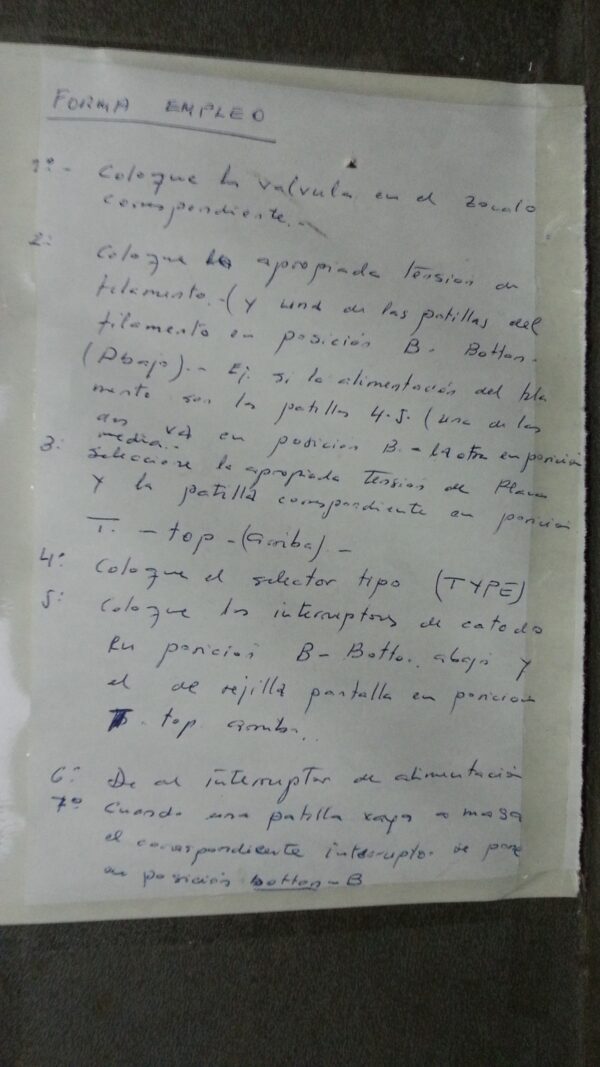 FORMA EMPLEO
1º.- Coloque la valvula en el zocalo
correspondiente.-
2º Coloque la apropiada tension de
filamento.-(y una de las patillas del
filamento en posición B- Botton-
(Abajo).- Ej. si la alimentación del fila
mento son las patillas 4-5. (una de las
dos va en posición B.- la otra en posición
media.-
3º Seleccione la apropiada tension de Placa
y la patilla correspondiente en posicion
T. - top -(arriba).-
4º Coloque el selector tipo (TYPE)
5º Coloque los interruptores de catodo
en posicion B- Botto. abajo y
el de rejilla pantalla en posicion
T- top arriba.
6º De al interruptor de alimentación
7º Cuando una patilla vaya a masa
el correspondiente interruptor se pone
en posición botton-B